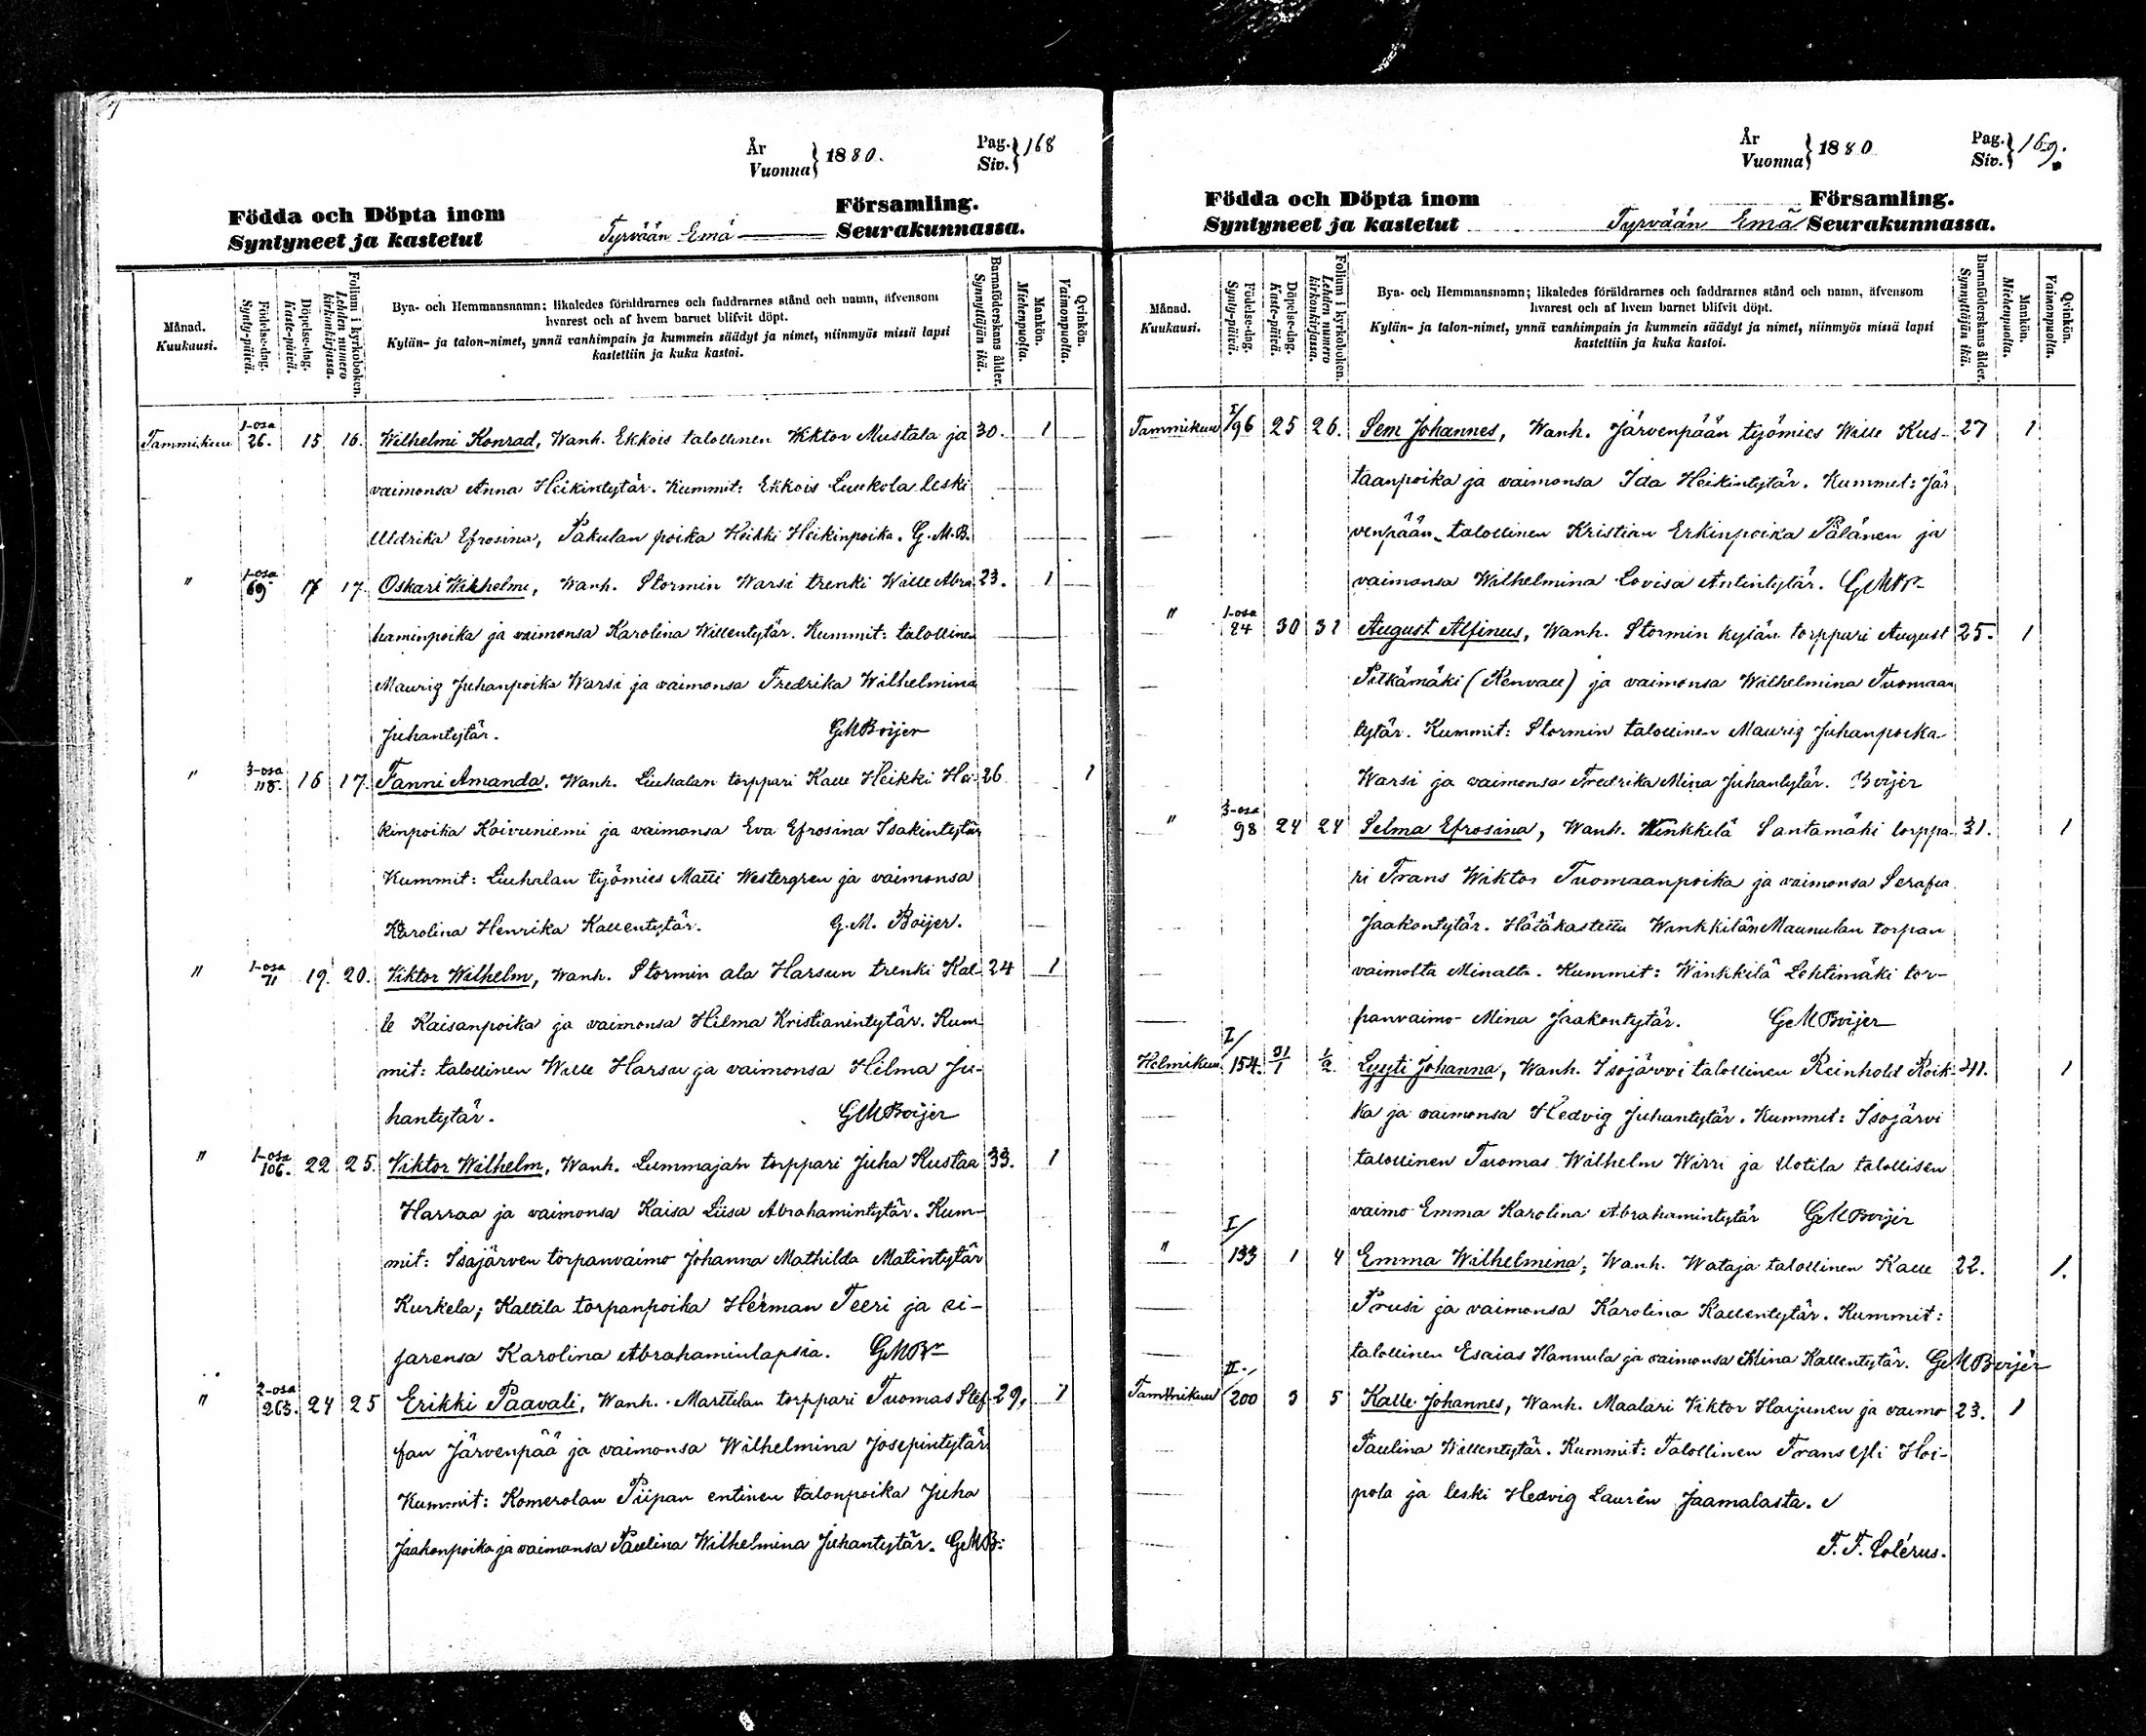 År
Vuonna } 1880.
Pag.
Siv. } 168
Födda och Döpta inom Församling.
Syntyneet ja kastetut Tyrvään Emä Seurakunnassa.
Månad.
Kuukausi.
Födelse-dag.
Synty-päivä.
Döpelse-dag.
Kaste-päivä.
Folium i kyrkoboken.
Lehden numero kirkonkirjassa.
Bya- och Hemmansnamn; likaledes föräldrarnes och faddrarnes stånd och namn, äfvensom
hvarest och af hvem barnet blifvit döpt.
Kylän- ja talon-nimet, ynnä vanhimpain ja kummein säädyt ja nimet, niinmyös missä lapsi
kastettiin ja kuka kastoi.
Barnaföderskans ålder.
Synnyttäjän ikä.
Mankön.
Miehenpuolta.
Qvinkön.
Vaimonpuolta.
1-osa
Tammikuu 26. 15 16. Wilhelmi Konrad, Wanh. Ekkois talollinen Wiktor Mustala ja 30. 1
vaimonsa Anna Heikintytär. Kummit: Ekkois Luukola leski
Uldrika Efrosina, Pakulan poika Heikki Heikinpoika. G.M.B.
1-osa
" 69 17 17. Oskari Wilhelmi, Wanh. Stormin Warsi trenki Wille Abra 23. 1
haminpoika ja vaimonsa Karolina Willentytär. Kummit: talollinen
Mauriz Juhanpoika Warsi ja vaimonsa Fredrika Wilhelmina
Juhantytär. GMBoijer
3-osa
" 118. 16 17. Fanni Amanda, Wanh. Liuhalan torppari Kalle Heikki Hei- 26 1
kinpoika Koivuniemi ja vaimonsa Eva Efrosina Isakintytär
Kummit: Liuhalan työmies Matti Westergren ja vaimonsa
Karolina Henrika Kallentytär. G.M. Boijer.
1-osa
" 71 19. 20. Viktor Wilhelm, Wanh. Stormin ala Harsun trenki Kal- 24 1
le Kaisanpoika ja vaimonsa Hilma Kristianintytär. Kum-
mit: talollinen Wille Harsu ja vaimonsa Hilma Ju-
hantytär. GMBoijer
1-osa
" 106. 22 25. Viktor Wilhelm, Wanh. Lummajan torppari Juha Kustaa 33. 1
Harraa ja vaimonsa Kaisa Liisa Abrahamintytär. Kum-
mit: Isajärven torpanvaimo Johanna Mathilda Matintytär
Kurkela; Kaltila torpanpoika Herman Teeri ja si-
sarensa Karolina Abrahaminlapsia. GMBr
2-osa
" 263. 24 25 Erikki Paavali, Wanh. Marttilan torppari Tuomas Stef- 29, 1
fan Järvenpää ja vaimonsa Wilhelmina Josepintytär
Kummit: Komerolan Piipan entinen talonpoika Juha
Jaakonpoika ja vaimonsa Paulina Wilhelmina Juhantytär. GMB:
År
Vuonna } 1880
Pag.
Siv. } 169.
Födda och Döpta inom Församling.
Syntyneet ja kastetut Tyrvään Emä Seurakunnassa.
Månad.
Kuukausi.
Födelse-dag.
Synty-päivä.
Döpelse-dag.
Kaste-päivä.
Folium i kyrkoboken.
Lehden numero kirkonkirjassa.
Bya- och Hemmansnamn; likaledes föräldrarnes och faddrarnes stånd och namn, äfvensom
hvarest och af hvem barnet blifvit döpt.
Kylän- ja talon-nimet, ynnä vanhimpain ja kummein säädyt ja nimet, niinmyös missä lapsi
kastettiin ja kuka kastoi.
Barnaföderskans ålder.
Synnyttäjän ikä.
Mankön.
Miehenpuolta.
Qvinkön.
Vaimonpuolta.
Tammikuu I/96 25 26. Sem Johannes, Wanh. Järvenpään työmies Wille Kus- 27 1
taanpoika ja vaimonsa Ida Heikintytär. Kummit: Jär
venpään talollinen Kristian Erkinpoika Pälänen ja
vaimonsa Wilhelmina Lovisa Antintytär. GMBr
1-osa
" 84 30 31 August Alfinus, Wanh. Stormin kylän torppari August 25. 1
Pitkämäki (Renvall) ja vaimonsa Wilhelmina Tuomaan
tytär. Kummit: Stormin talollinen Mauriz Juhanpoika
Warsi ja vaimonsa Fredrika Mina Juhantytär. Boijer
3-osa
" 98 24 24 Selma Efrosina, Wanh. Winkkilä Santamäki torppa- 31. 1
ri Frans Wiktor Tuomaanpoika ja vaimonsa Serafia
Jaakontytär. Hätäkastettu Winkkilän Maunulan torpan
vaimolta Minalta. Kummit: Winkkilä Lehtimäki tor-
panvaimo Mina Jaakontytär. GMBoijer
Helmikuu I/154. 31/1 1/2 Lyyti Johanna, Wanh. Isojärvi talollinen Reinhold Roik- 41. 1
ka ja vaimonsa Hedvig Juhantytär. Kummit: Isojärvi
talollinen Tuomas Wilhelm Wirri ja Uotila talollisen
vaimo Emma Karolina Abrahamintytär GMBoijer
" I/133 1 4 Emma Wilhelmina, Wanh. Wataja talollinen Kalle 22. 1.
Prusi ja vaimonsa Karolina Kallentytär. Kummit:
talollinen Esaias Hannula ja vaimonsa Mina Kallentytär. GMBoijer
Tammikuu II./200 3 5 Kalle Johannes, Wanh. Maalari Viktor Haijunen ja vaimo 23. 1
Paulina Willentytär. Kummit: Talollinen Frans Yli Hoi-
pola ja leski Hedvig Laurén Jaamalasta.
F. F. Lolérus.